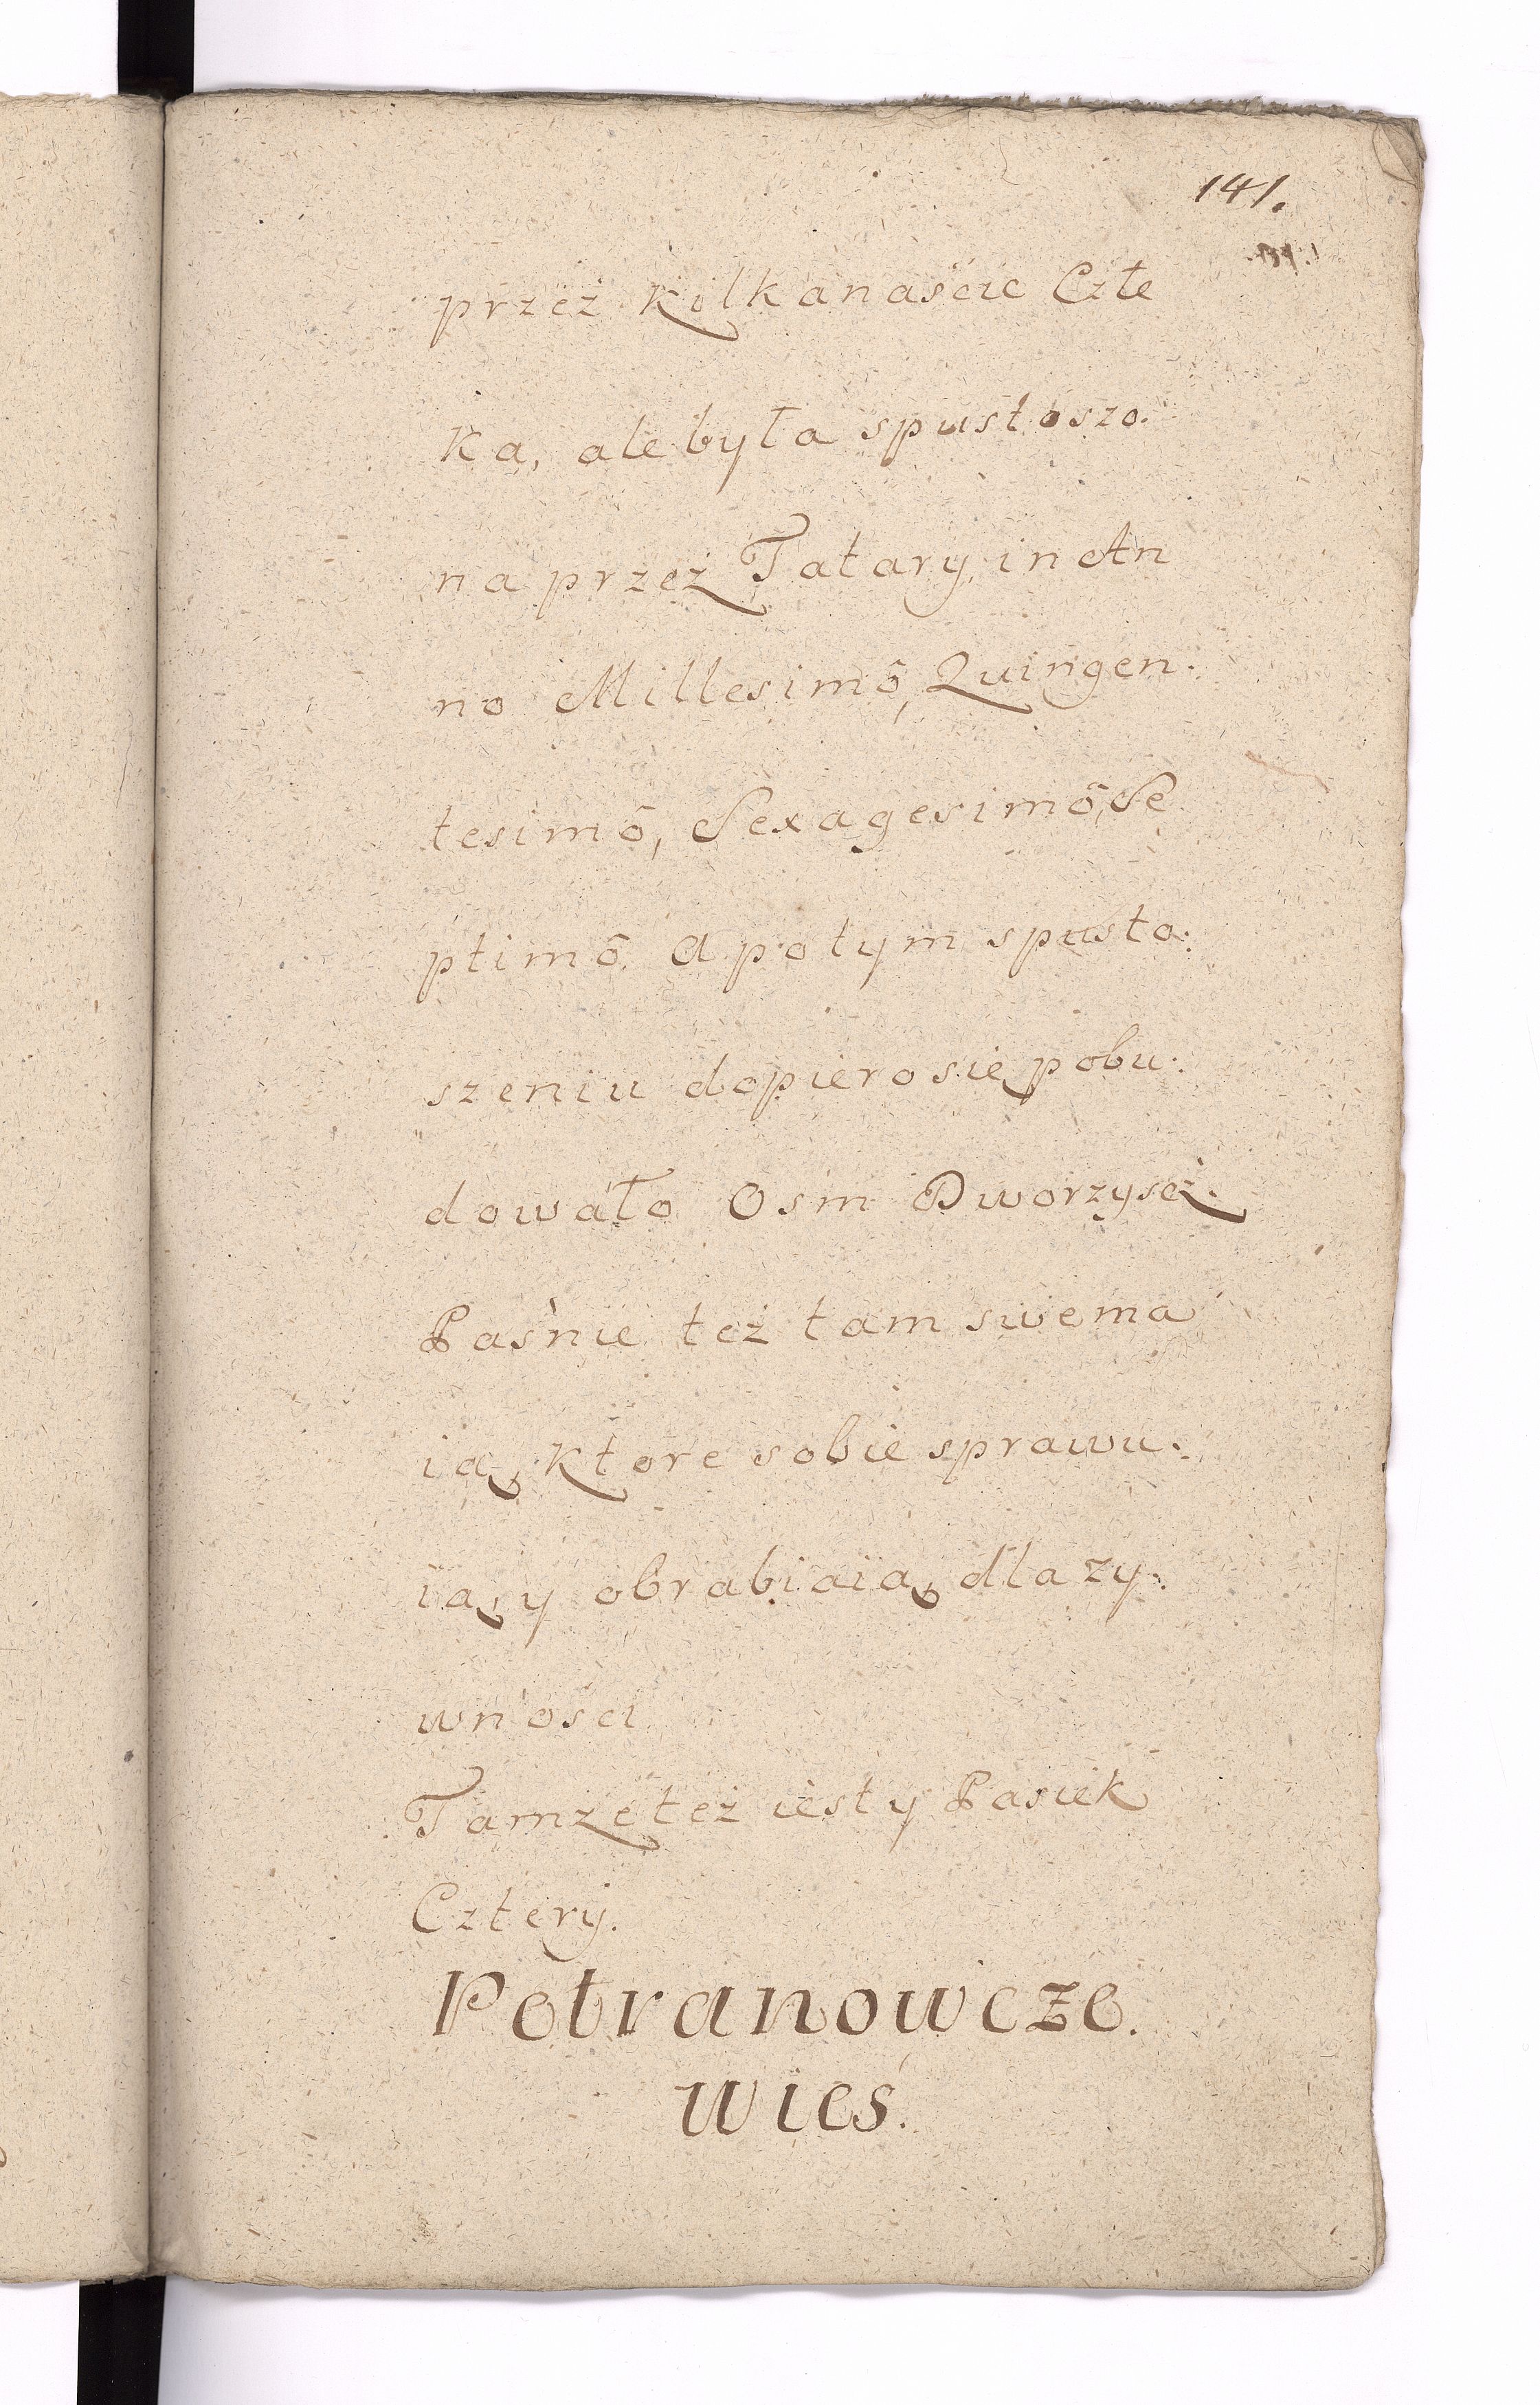 141.
przez kilkanaście Człe
ka, ale była spustoszo.
na przez Tatary, in An
no Millesimô, Quingen.
tesimô, Sexagesimô, Se
ptimô. A po tym spusto:
szeniu dopiero się pobu:
dowało Osm Dworzyscz.
Paśnie też tam swe ma
ią, ktore sobie sprawu:
ią, y obrabiaią, dla zy:
wności
Tamze też iesty Pasiek
Cztery.
Petranowcze.
wieś.